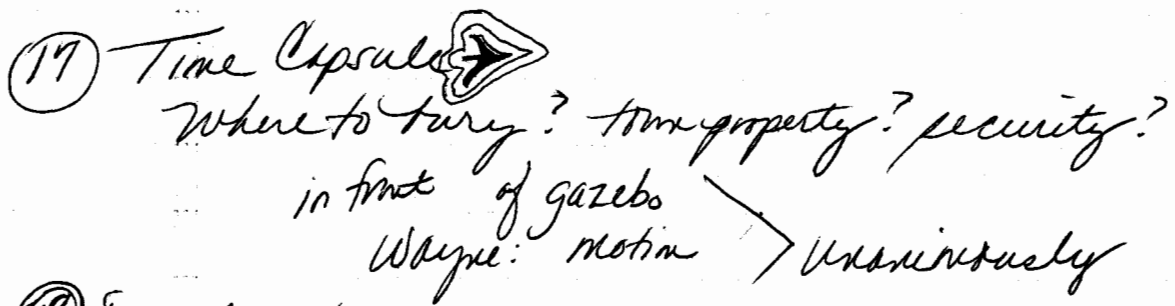 17 Time Capsule
Where to bury? town property? security?
in front of gazebo
Wayne: motion > unanimously